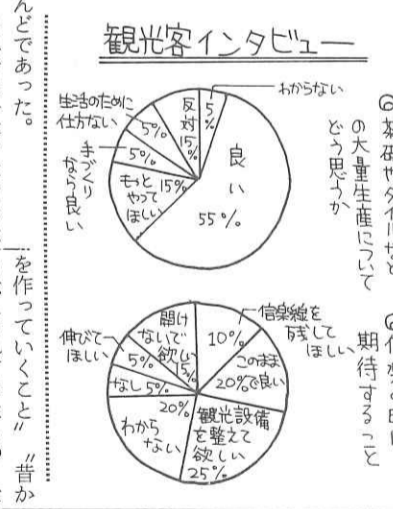 観光客インタビュー
の大量生産について
どう思うか
わからない
5%
良い
55%
もっと
やって
ほしい
15%
手づくり
なら良い
5%
生活のために
仕方ない
5%
反対
15%
期待すること
信楽線を
残して
ほしい
10%
このまま
で良い
20%
観光設備
を整えて
欲しい
25%
わから
ない
20%
なし5%
伸びて
ほしい
5%
開け
ないで
欲しい
15%
んどであった。
を作っていくこと〟〝昔か